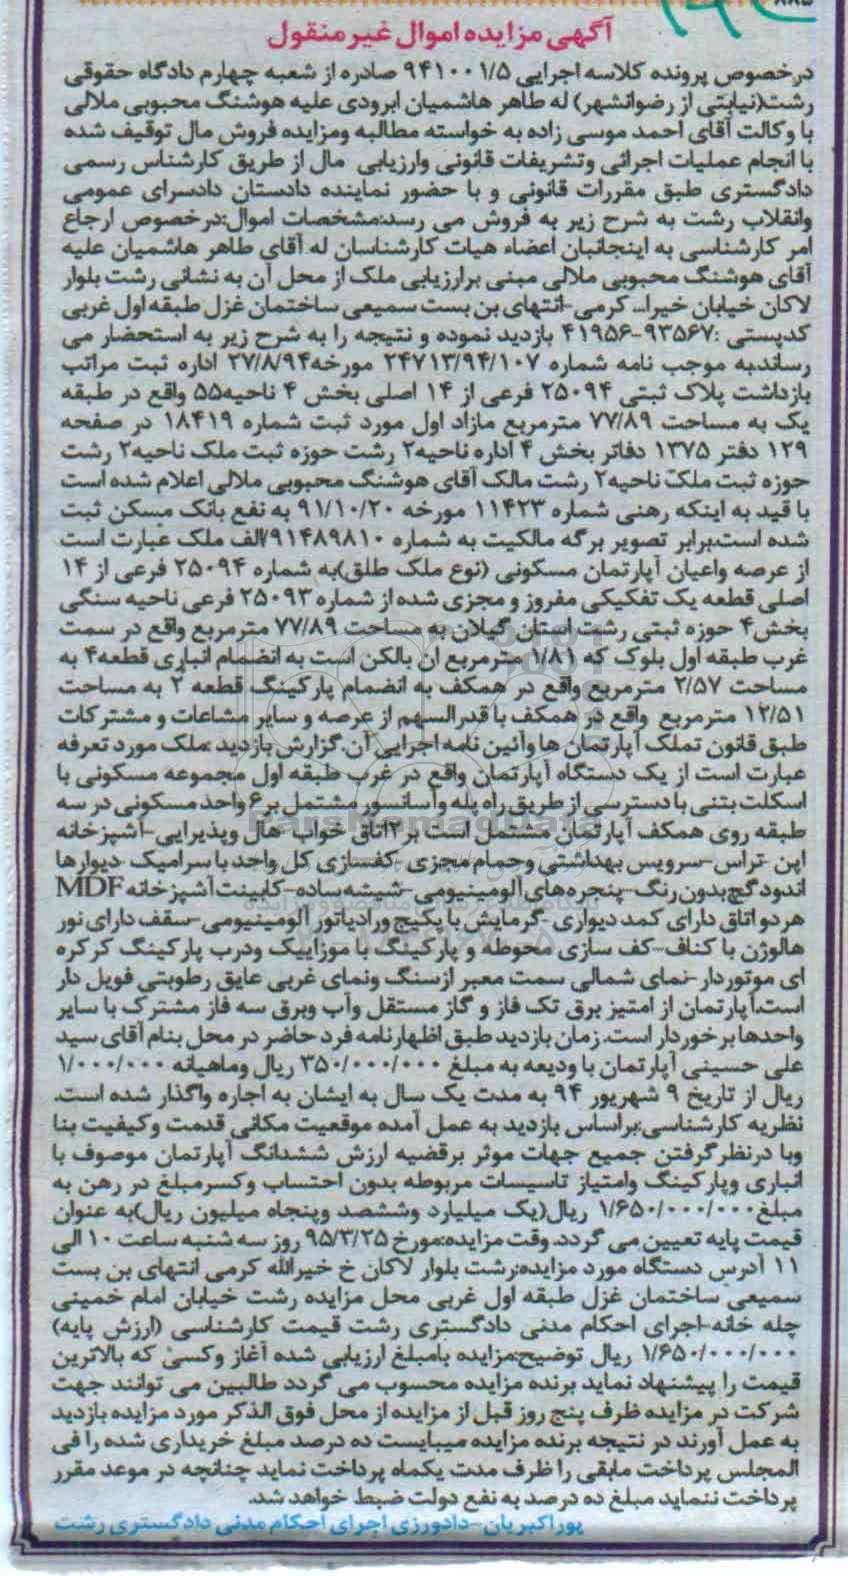 آگهی مزایده اموال غیر منقول
درخصوص پرونده کلاسه اجرایی ۹۴۱۰۰۱/۵ صادره از شعبه چهارم دادگاه حقوقی
رشت(نیابتی از رضوانشهر) له طاهر هاشمیان ابرودی علیه هوشنگ محبوبی ملالی
با وکالت آقای احمد موسی زاده به خواسته مطالبه ومزایده فروش مال توقیف شده
با انجام عملیات اجرائی وتشریفات قانونی وارزیابی مال از طریق کارشناس رسمی
دادگستری طبق مقررات قانونی و با حضور نماینده دادستان دادسرای عمومی
وانقلاب رشت به شرح زیر به فروش می رسد:مشخصات اموال:درخصوص ارجاع
امر کارشناسی به اینجانبان اعضاء هیات کارشناسان له آقای طاهر هاشمیان علیه
آقای هوشنگ محبوبی ملالی مبنی برارزیابی ملک از محل آن به نشانی رشت بلوار
لاکان خیابان خیرا... کرمی-انتهای بن بست سمیعی ساختمان غزل طبقه اول غربی
کدپستی :۹۳۵۶۷-۴۱۹۵۶ بازدید نموده و نتیجه را به شرح زیر به استحضار می
رساند.به موجب نامه شماره ۲۴۷۱۳/۹۴/۱۰۷ مورخه۲۷/۸/۹۴ اداره ثبت مراتب
بازداشت پلاک ثبتی ۲۵۰۹۴ فرعی از ۱۴ اصلی بخش ۴ ناحیه۵۵ واقع در طبقه
یک به مساحت ۷۷/۸۹ مترمربع مازاد اول مورد ثبت شماره ۱۸۴۱۹ در صفحه
۱۲۹ دفتر ۱۳۷۵ دفاتر بخش ۴ اداره ناحیه۲ رشت حوزه ثبت ملک ناحیه۲ رشت
حوزه ثبت ملک ناحیه۲ رشت مالک آقای هوشنگ محبوبی ملالی اعلام شده است
با قید به اینکه رهنی شماره ۱۱۴۲۳ مورخه ۹۱/۱۰/۲۰ به نفع بانک مسکن ثبت
شده است.برابر تصویر برگه مالکیت به شماره ۹۱۴۸۹۸۱۰/الف ملک عبارت است
از عرصه واعیان آپارتمان مسکونی (نوع ملک طلق)به شماره ۲۵۰۹۴ فرعی از ۱۴
اصلی قطعه یک تفکیکی مفروز و مجزی شده از شماره ۲۵۰۹۳ فرعی ناحیه سنگی
بخش۴ حوزه ثبتی رشت استان گیلان به مساحت ۷۷/۸۹ مترمربع واقع در سمت
غرب طبقه اول بلوک که ۱/۸۱ مترمربع ان بالکن است به انضمام انباری قطعه۴ به
مساحت ۲/۵۷ مترمربع واقع در همکف به انضمام پارکینگ قطعه ۲ به مساحت
۱۲/۵۱ مترمربع واقع در همکف با قدرالسهم از عرصه و سایر مشاعات و مشترکات
طبق قانون تملک آپارتمان ها وآئین نامه اجرایی آن.گزارش بازدید :ملک مورد تعرفه
عبارت است از یک دستگاه آپارتمان واقع در غرب طبقه اول مجموعه مسکونی با
اسکلت بتنی با دسترسی از طریق راه پله وآسانسور مشتمل بر۶ واحد مسکونی در سه
طبقه روی همکف آپارتمان مشتمل است بر۲اتاق خواب- هال وپذیرایی-آشپزخانه
اپن -تراس-سرویس بهداشتی وحمام مجزی -کفسازی کل واحد با سرامیک -دیوارها
اندود گچ بدون رنگ-پنجره های آلومینیومی-شیشه ساده-کابینت آشپزخانه MDF
هر دو اتاق دارای کمد دیواری -گرمایش با پکیج ورادیاتور آلومینیومی-سقف دارای نور
هالوژن با کناف-کف سازی محوطه و پارکینگ با موزاییک ودرب پارکینگ کرکره
ای موتوردار-نمای شمالی سمت معبر ازسنگ ونمای غربی عایق رطوبتی فویل دار
است.آپارتمان از امتیز برق تک فاز و گاز مستقل وآب وبرق سه فاز مشترک با سایر
واحدها برخوردار است. زمان بازدید طبق اظهارنامه فرد حاضر در محل بنام آقای سید
علی حسینی آپارتمان با ودیعه به مبلغ ۳۵۰/۰۰۰/۰۰۰ ریال وماهیانه ۱/۰۰۰/۰۰۰
ریال از تاریخ ۹ شهریور ۹۴ به مدت یک سال به ایشان به اجاره واگذار شده است.
نظریه کارشناسی:براساس بازدید به عمل آمده موقعیت مکانی قدمت وکیفیت بنا
وبا درنظرگرفتن جمیع جهات موثر برقضیه ارزش ششدانگ آپارتمان موصوف با
انباری وپارکینگ وامتیاز تاسیسات مربوطه بدون احتساب وکسرمبلغ در رهن به
مبلغ۱/۶۵۰/۰۰۰/۰۰۰ ریال(یک میلیارد وششصد وپنجاه میلیون ریال)به عنوان
قیمت پایه تعیین می گردد. وقت مزایده:مورخ ۹۵/۳/۲۵ روز سه شنبه ساعت ۱۰ الی
۱۱ آدرس دستگاه مورد مزایده:رشت بلوار لاکان خ خیرالله کرمی انتهای بن بست
سمیعی ساختمان غزل طبقه اول غربی محل مزایده رشت خیابان امام خمینی
چله خانه-اجرای احکام مدنی دادگستری رشت قیمت کارشناسی (ارزش پایه)
۱/۶۵۰/۰۰۰/۰۰۰ ریال توضیح:مزایده بامبلغ ارزیابی شده آغاز وکسی که بالاترین
قیمت را پیشنهاد نماید برنده مزایده محسوب می گردد طالبین می توانند جهت
شرکت در مزایده ظرف پنج روز قبل از مزایده از محل فوق الذکر مورد مزایده بازدید
به عمل آورند در نتیجه برنده مزایده میبایست ده درصد مبلغ خریداری شده را فی
المجلس پرداخت مابقی را ظرف مدت یکماه پرداخت نماید چنانچه در موعد مقرر
پرداخت ننماید مبلغ ده درصد به نفع دولت ضبط خواهد شد.
پوراکبریان-دادورزی اجرای احکام مدنی دادگستری رشت
ParsNamadData